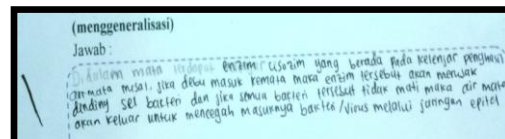 (menggeneralisasi)
Jawab :
Didalam mata terdapat enzim usozim yang berada pada kelenjar penghasil
air mata misal, jika debu masuk kemata maka enzim tersebut akan merusak
dinding sel bakteri dan jika semua bakteri tersebut tidak mati maka air mata
akan keluar untuk mencegah masuknya bakteri/virus melalui jaringan epitel